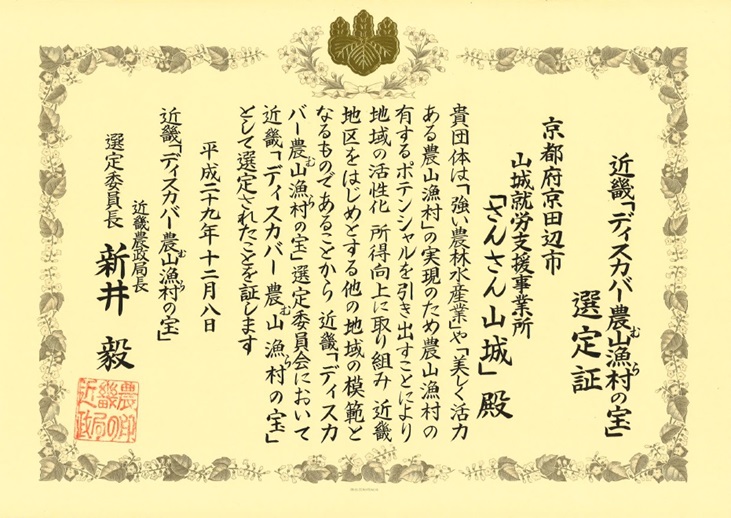 近畿「ディスカバー農山漁村の宝」
選定証
京都府京田辺市
山城就労支援事業所
「さんさん山城」殿
貴団体は「強い農林水産業」や「美しく活力
ある農山漁村」の実現のため農山漁村の
有するポテンシャルを引き出すことにより
地域の活性化 所得向上に取り組み 近畿
地区をはじめとする他の地域の模範と
なるものであることから 近畿「ディスカ
バー農山漁村の宝」選定委員会において
近畿「ディスカバー農山漁村の宝」
として選定されたことを証します
平成二十九年十二月八日
近畿「ディスカバー農山漁村の宝」
選定委員長
近畿農政局長
新井 毅